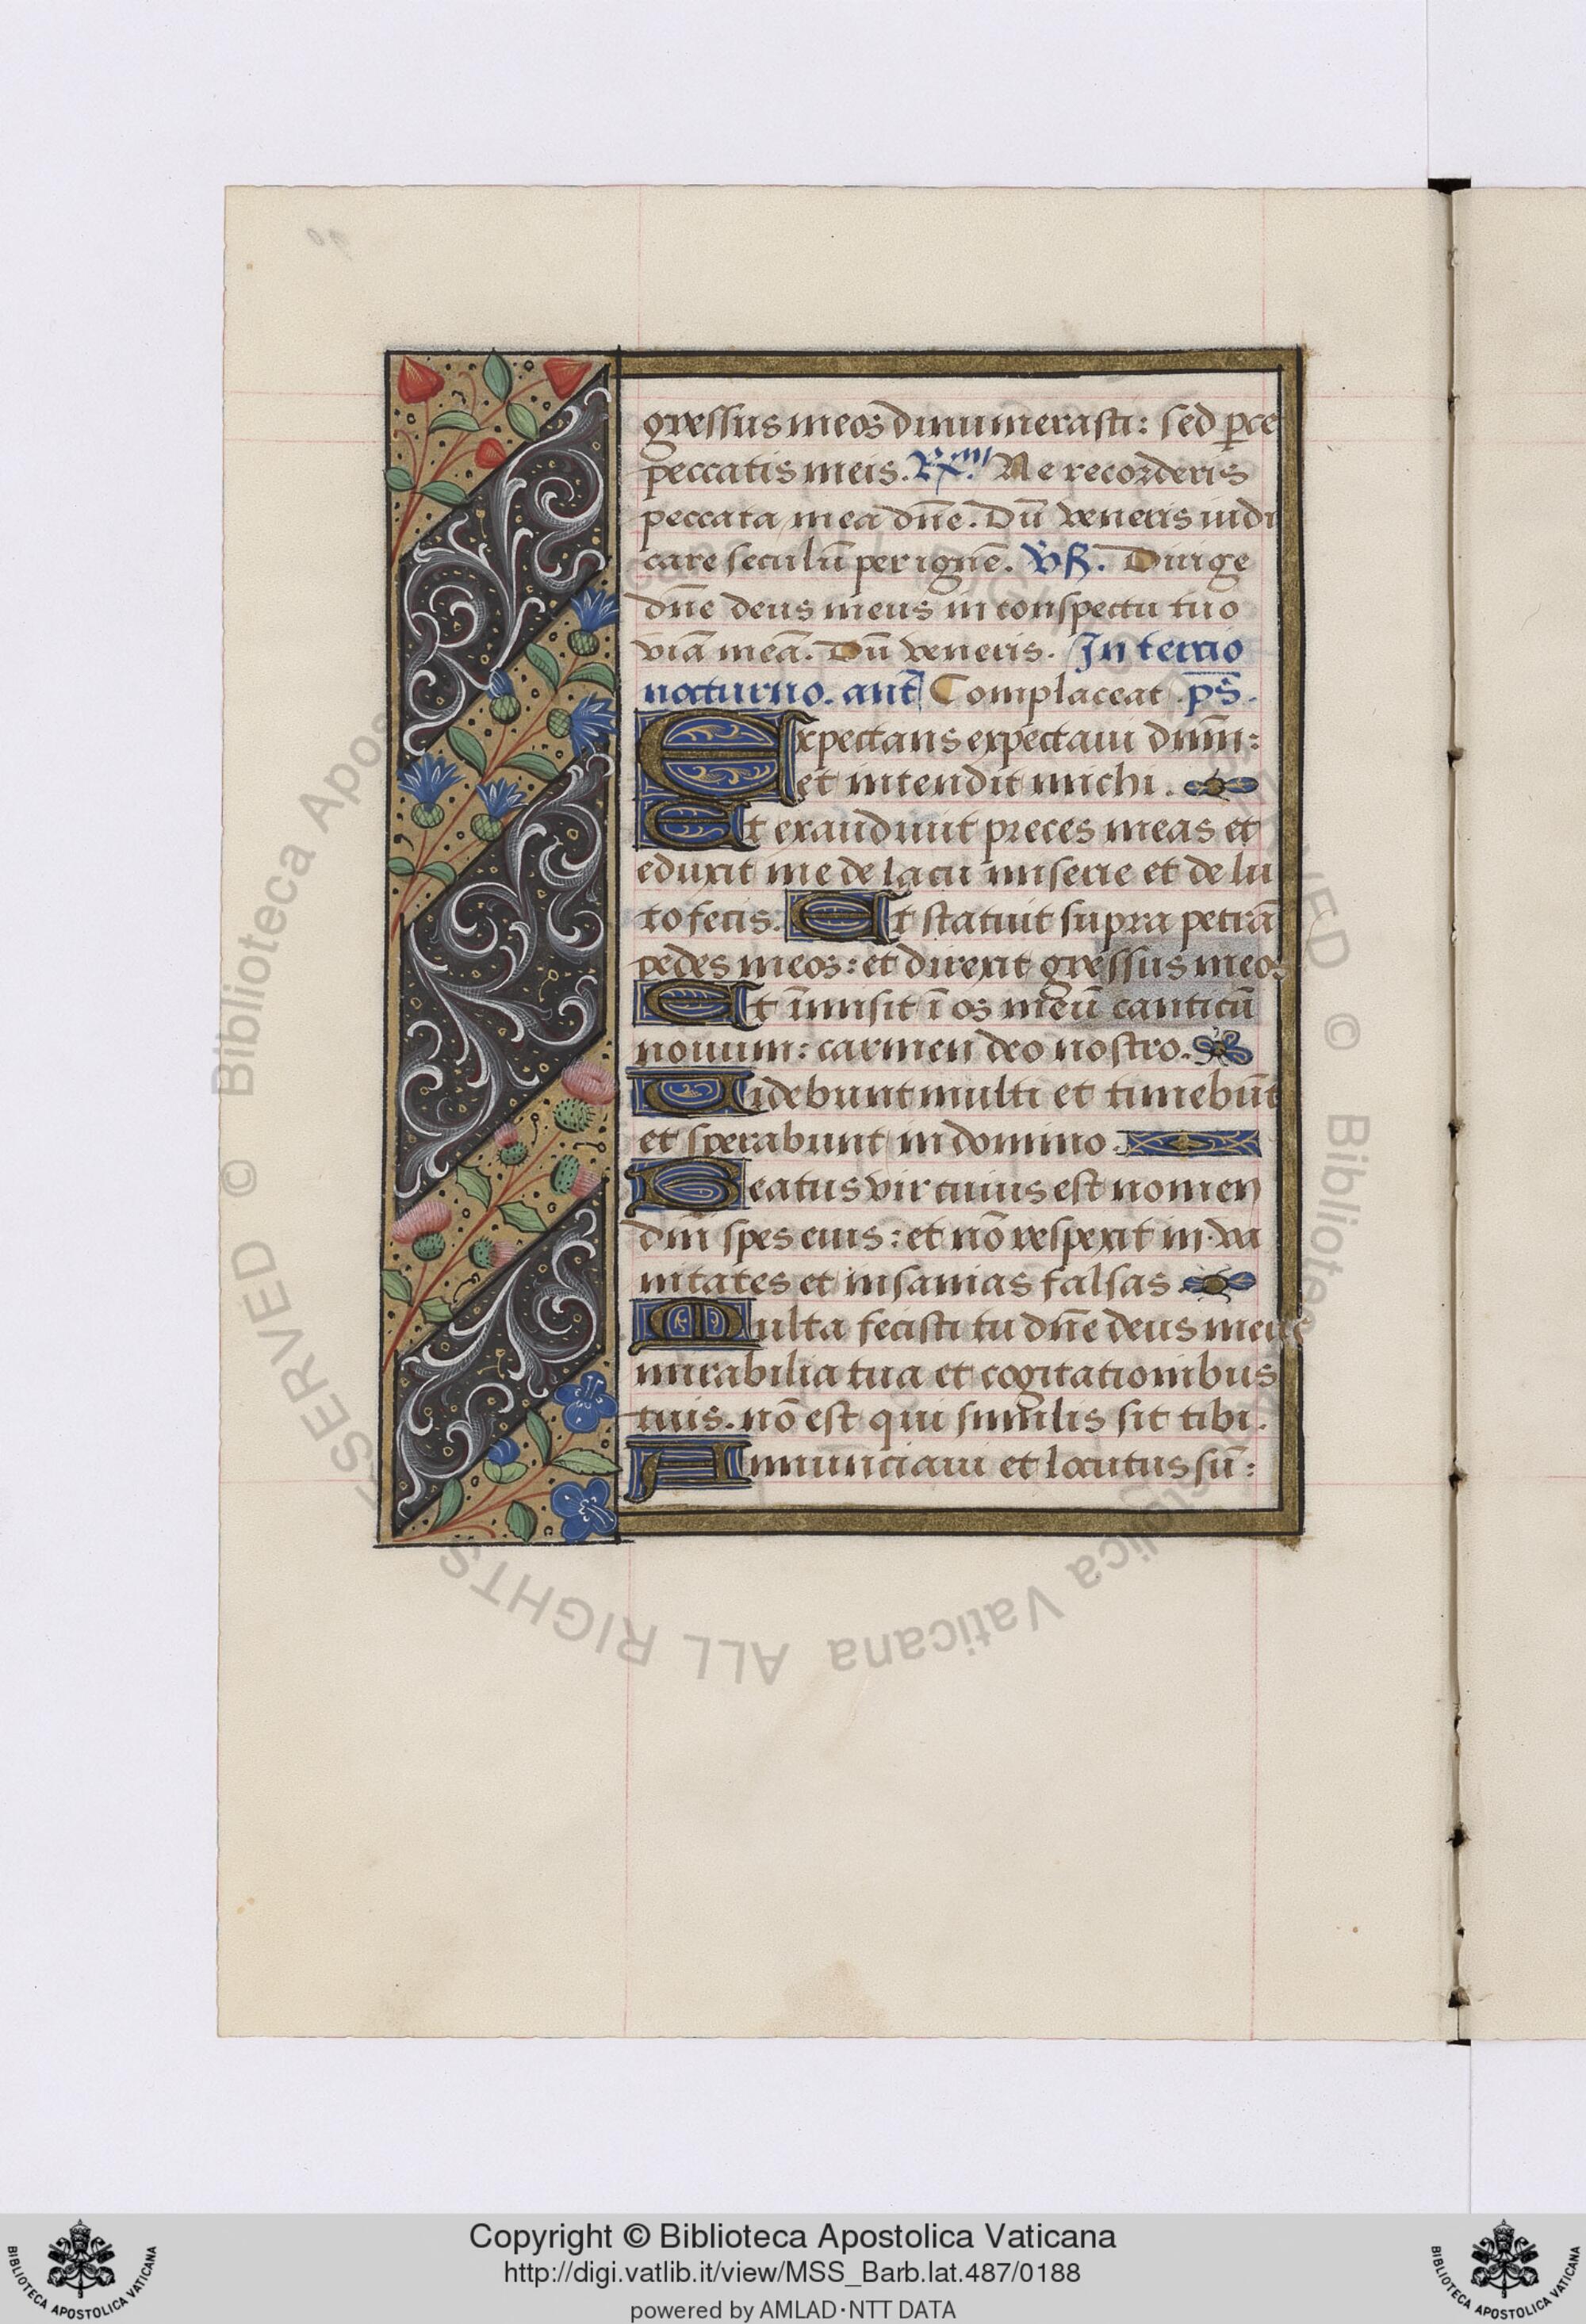 gressus meos dinumerasti: sed p̱ce
peccatis meis. R̷. Ne recorderis
peccata mea dñe. Dũ veneris iudi
care seculũ per ignẽ. v̄ß. Dirige
dñe deus meus in conspectu tuo
viã meã. Dũ veneris. In tercio
nocturno. ant̃ Complaceat. ps̄.
Expectans expectaui dñm̄:
et intendit michi.
Et exaudiuit preces meas et
eduxit me de lacu miserie et de lu
to fecis. Et statuit supra petrã
pedes meos: et direxit gressus meos
Et ĩmisit ĩ os meũ canticũ
nouum: carmen deo nostro.
Uidebunt multi et timebũt
et sperabunt in domino.
Beatus vir cuius est nomen
dñi spes eius: et nõ respexit in va
nitates et insanias falsas.
Multa fecisti tu dñe deus meus
mirabilia tua et cogitationibus
tuis. nõ est qui similis sit tibi.
Annunciaui et locutus sũ:
© Biblioteca Apostolica Vaticana ALL RIGHTS RESERVED
Copyright © Biblioteca Apostolica Vaticana
http://digi.vatlib.it/view/MSS_Barb.lat.487/0188
powered by AMLAD·NTT DATA
BIBLIOTECA APOSTOLICA VATICANA
BIBLIOTECA APOSTOLICA VATICANA